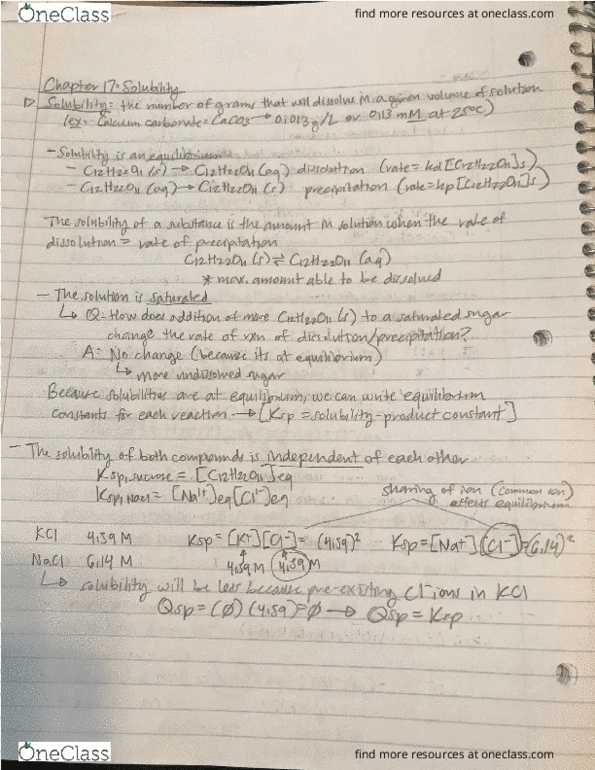 OneClass
find more resources at oneclass.com
Chapter 17: Solubility
Solubility: the number of grams that will dissolve in a given volume of solution
(ex: Calcium carbonate = CaCO3 → 0.013 g/L or 0.13 mM at 25°C)
- Solubility is an equilibrium
- C12H22O11 (s) → C12H22O11 (aq) dissolution (rate = kd[C12H22O11]s)
- C12H22O11 (aq) → C12H22O11 (s) precipitation (rate = kp[C12H22O11]s)
The solubility of a substance is the amount in solution when the rate of
dissolution = rate of precipitation
C12H22O11 (s) ⇌ C12H22O11 (aq)
* max. amount able to be dissolved
- The solution is saturated
↳ Q: How does addition of more C12H22O11 (s) to a saturated sugar
change the rate of rxn of dissolution/precipitation?
A: No change (because its at equilibrium)
↳ more undissolved sugar
Because solubilities are at equilibrium, we can write equilibrium
constants for each reaction → [Ksp = solubility-product constant]
- The solubility of both compounds is independent of each other
Ksp, sucrose = [C12H22O11]eq
Ksp, NaCl = [Na1+]eq[Cl1-]eq
sharing of ion (common ion)
affects equilibrium
KCl 4.59 M Ksp = [K+][Cl-] = (4.59)² Ksp = [Na+][Cl-] = (6.14)²
NaCl 6.14 M 4.59 M 4.59 M
↳ solubility will be less because pre-existing Cl- ions in KCl
Qsp = (∅)(4.59) = ∅ → Qsp = Ksp
OneClass
find more resources at oneclass.com